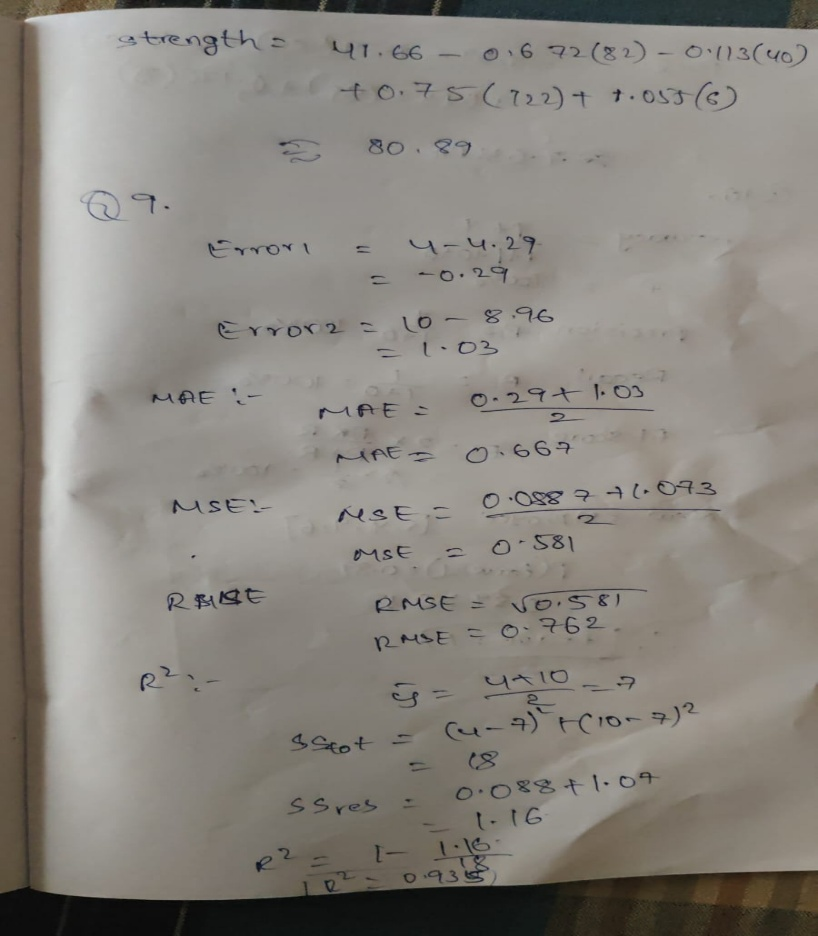 strength = 41.66 - 0.672(82) - 0.113(40)
+ 0.75(122) + 1.055(6)
≈ 80.89
Q 9.
Error1 = 4 - 4.29
= -0.29
Error2 = 10 - 8.96
= 1.03
MAE :- MAE = 0.29 + 1.03 / 2
MAE = 0.667
MSE:- MSE = 0.0887 + 1.073 / 2
MSE = 0.581
RMSE RMSE = √0.581
RMSE = 0.762
R² :- ȳ = 4+10 / 2 = 7
SStot = (4-7)² + (10-7)²
= 18
SSres = 0.088 + 1.07
= 1.16
R² = 1 - 1.16 / 18
R² = 0.935